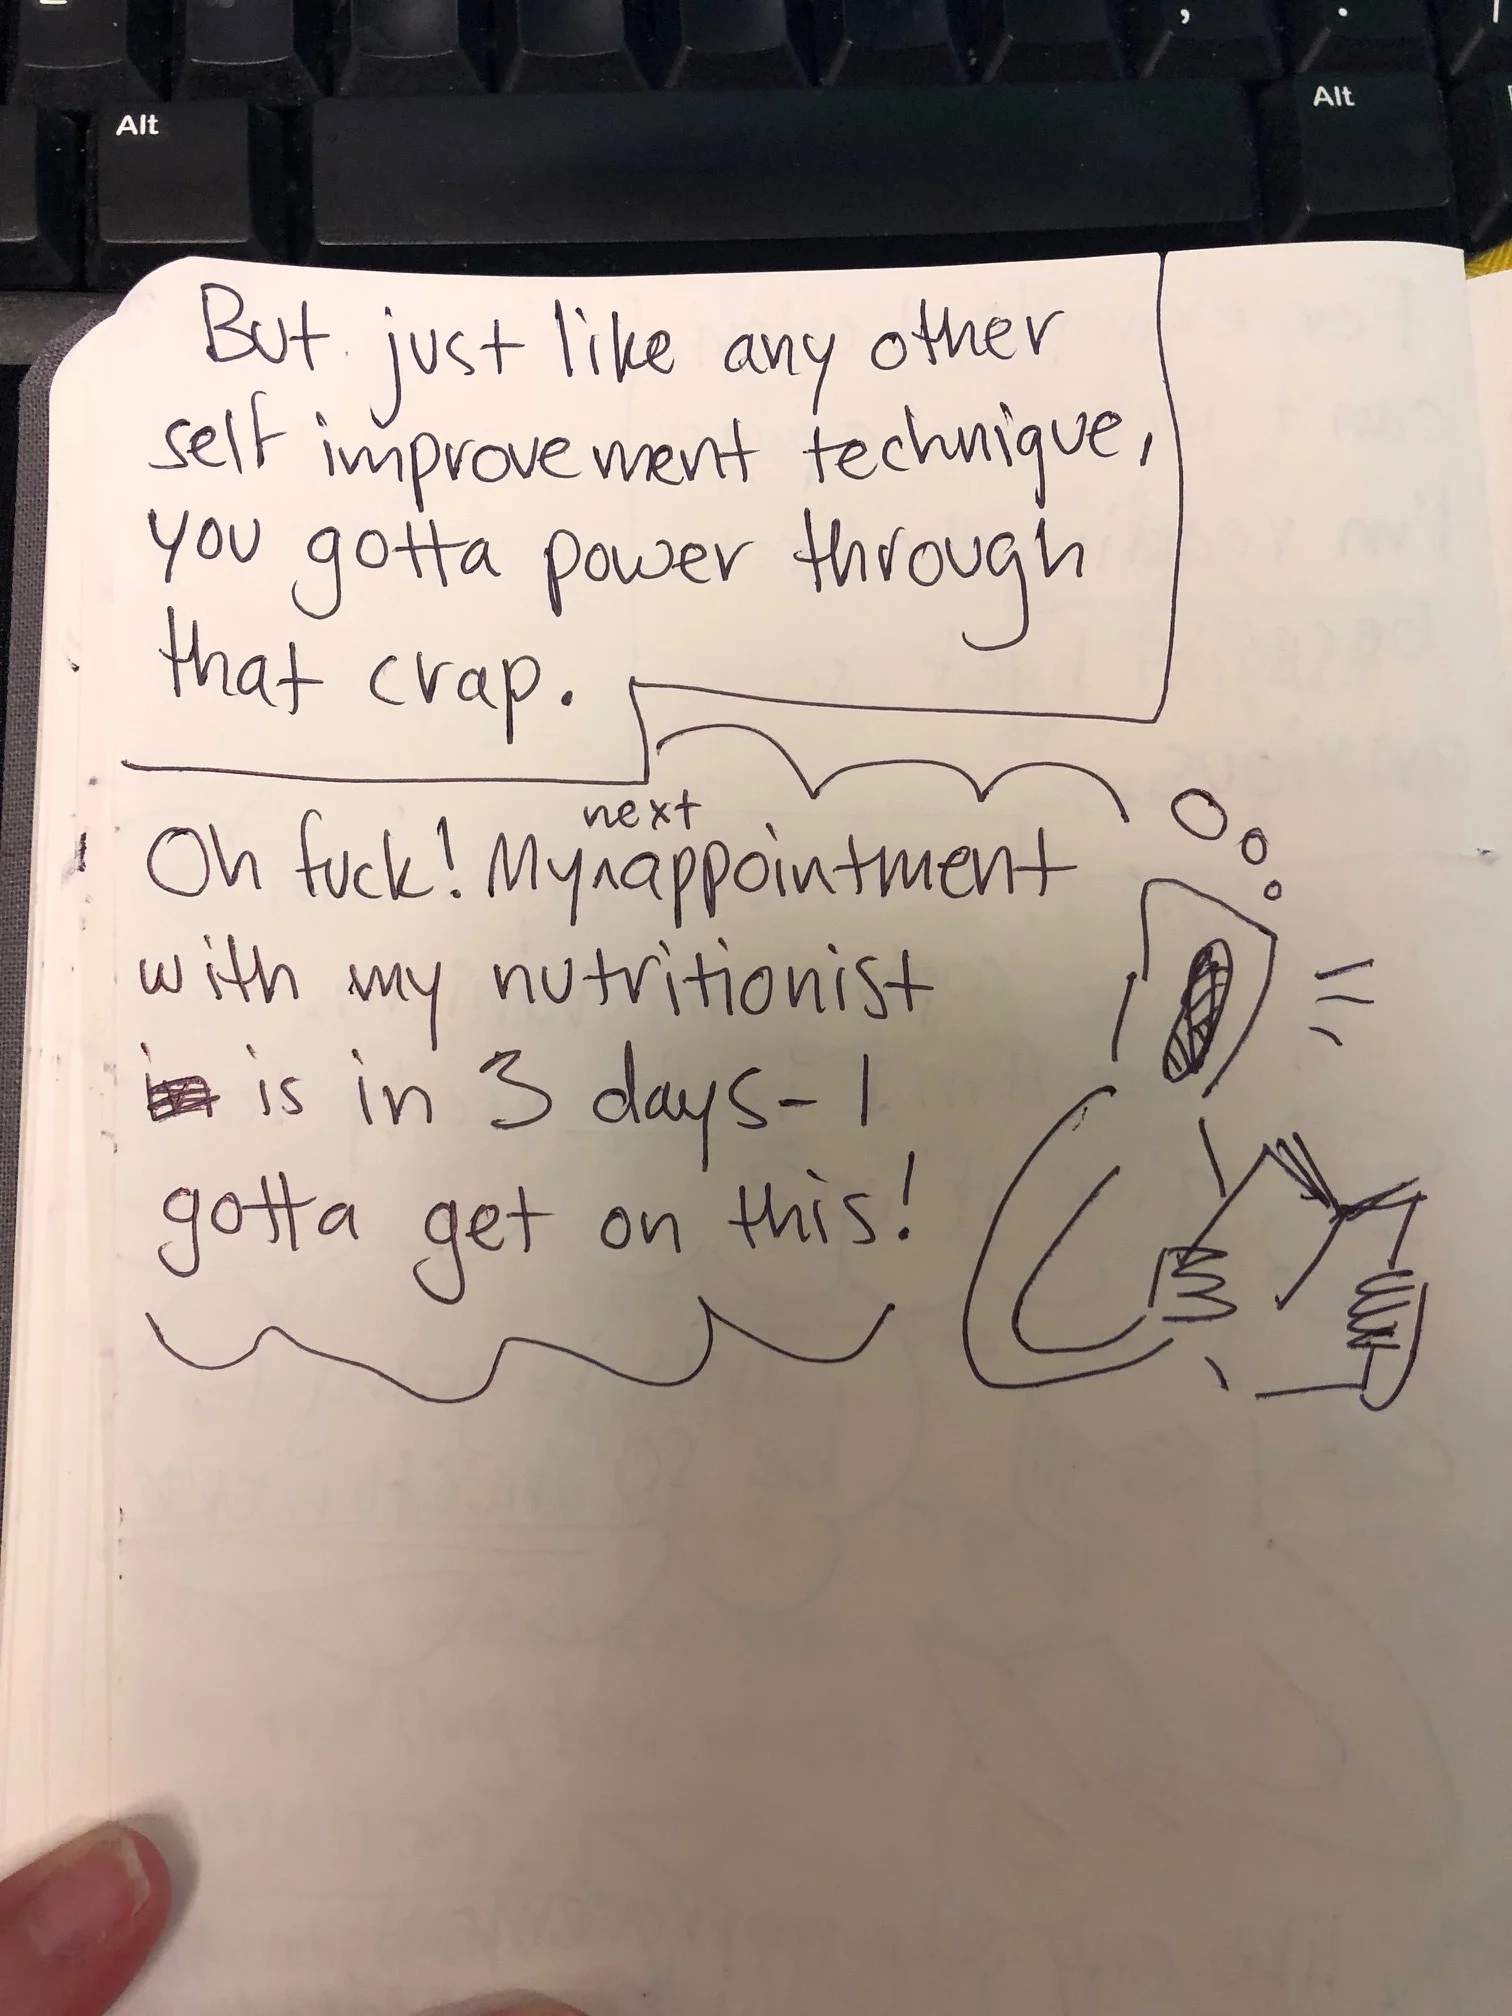 Alt
Alt
But just like any other
self improvement technique,
you gotta power through
that crap.
next
Oh fuck! My^appointment
with my nutritionist
is in 3 days - I
gotta get on this!